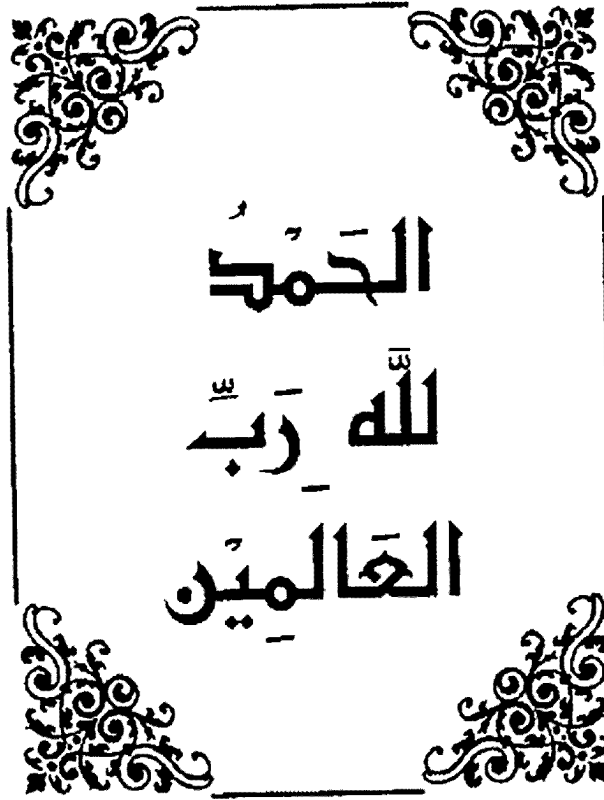 الحَمْدُ
للَّهِ رَبِّ
العَالَمِيْن